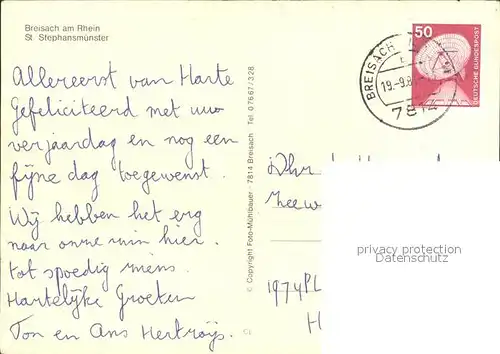 Breisach am Rhein
St. Stephansmünster
Allereerst van Harte
Gefeliciteerd met uw
verjaardag en nog een
fijne dag toegewenst.
Wij hebben het erg
naar onze zin hier.
tot spoedig weer
Hartelijke Groeten
Ton en Ans Hertroijs.
© Copyright Foto-Mühlbauer · 7814 Breisach Tel. 0 76 67 / 3 28
BREISACH
19.-9.8
7814
50
DEUTSCHE BUNDESPOST
Dhr
1974 PL
H
privacy protection
Datenschutz